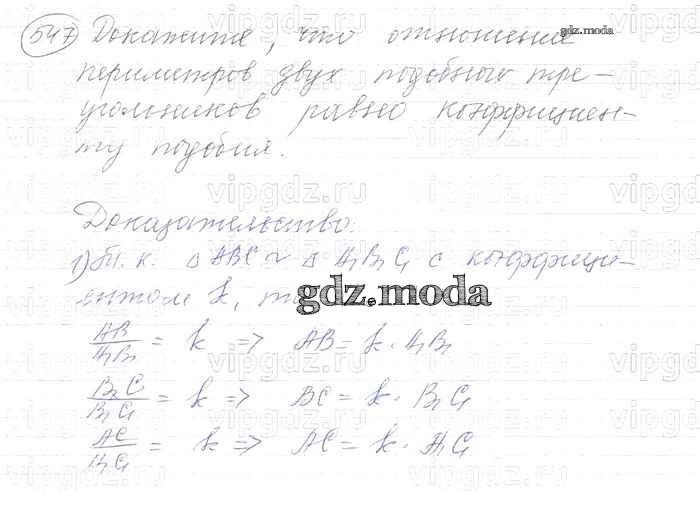 547 Докажите, что отношение
периметров двух подобных тре-
угольников равно коэффициен-
ту подобия.
Доказательство:
1) т. к. △ ABC ~ △ A₁B₁C₁ с коэффици-
ентом k, то
gdz.moda
AB/A₁B₁ = k => AB = k · A₁B₁
BC/B₁C₁ = k => BC = k · B₁C₁
AC/A₁C₁ = k => AC = k · A₁C₁
gdz.moda
vipgdz.ru